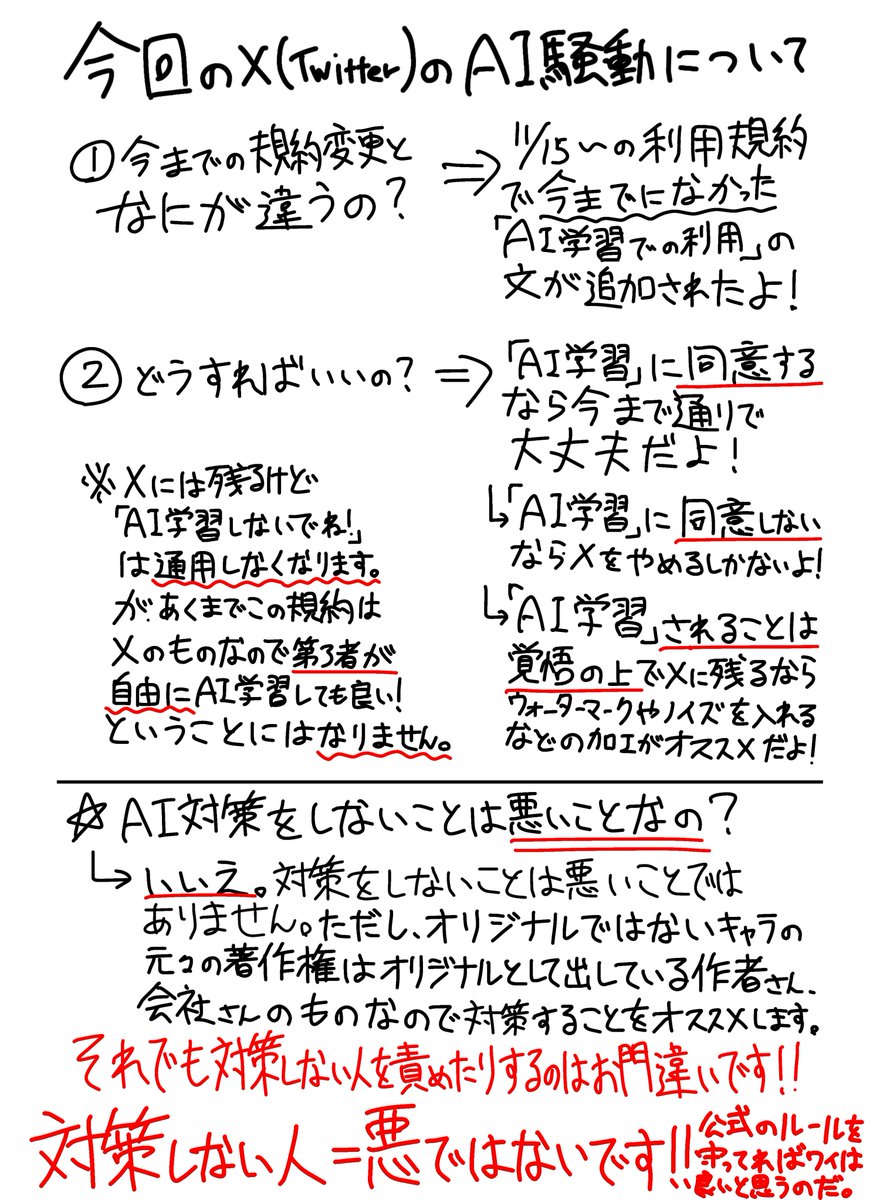 今回のX(Twitter)のAI騒動について
①今までの規約変更と
なにが違うの?
⇒
11/15〜の利用規約
で今までになかった
「AI学習での利用」の
文が追加されたよ!
②どうすればいいの?
⇒
「AI学習」に同意する
なら今まで通りで
大丈夫だよ!
↳「AI学習」に同意しない
ならXをやめるしかないよ!
↳「AI学習」されることは
覚悟の上でXに残るなら
ウォーターマークやノイズを入れる
などの加工がオススメだよ!
※Xには残るけど
「AI学習しないでね!」
は通用しなくなります。
が、あくまでこの規約は
Xのものなので第3者が
自由にAI学習しても良い!
ということにはなりません。
☆AI対策をしないことは悪いことなの?
↳いいえ。対策をしないことは悪いことでは
ありません。ただし、オリジナルではないキャラの
元々の著作権はオリジナルとして出している作者さん、
会社さんのものなので対策することをオススメします。
それでも対策しない人を責めたりするのはお門違いです!!
対策しない人=悪ではないです!!
公式のルールを
守ってればワイは
良いと思うのだ。